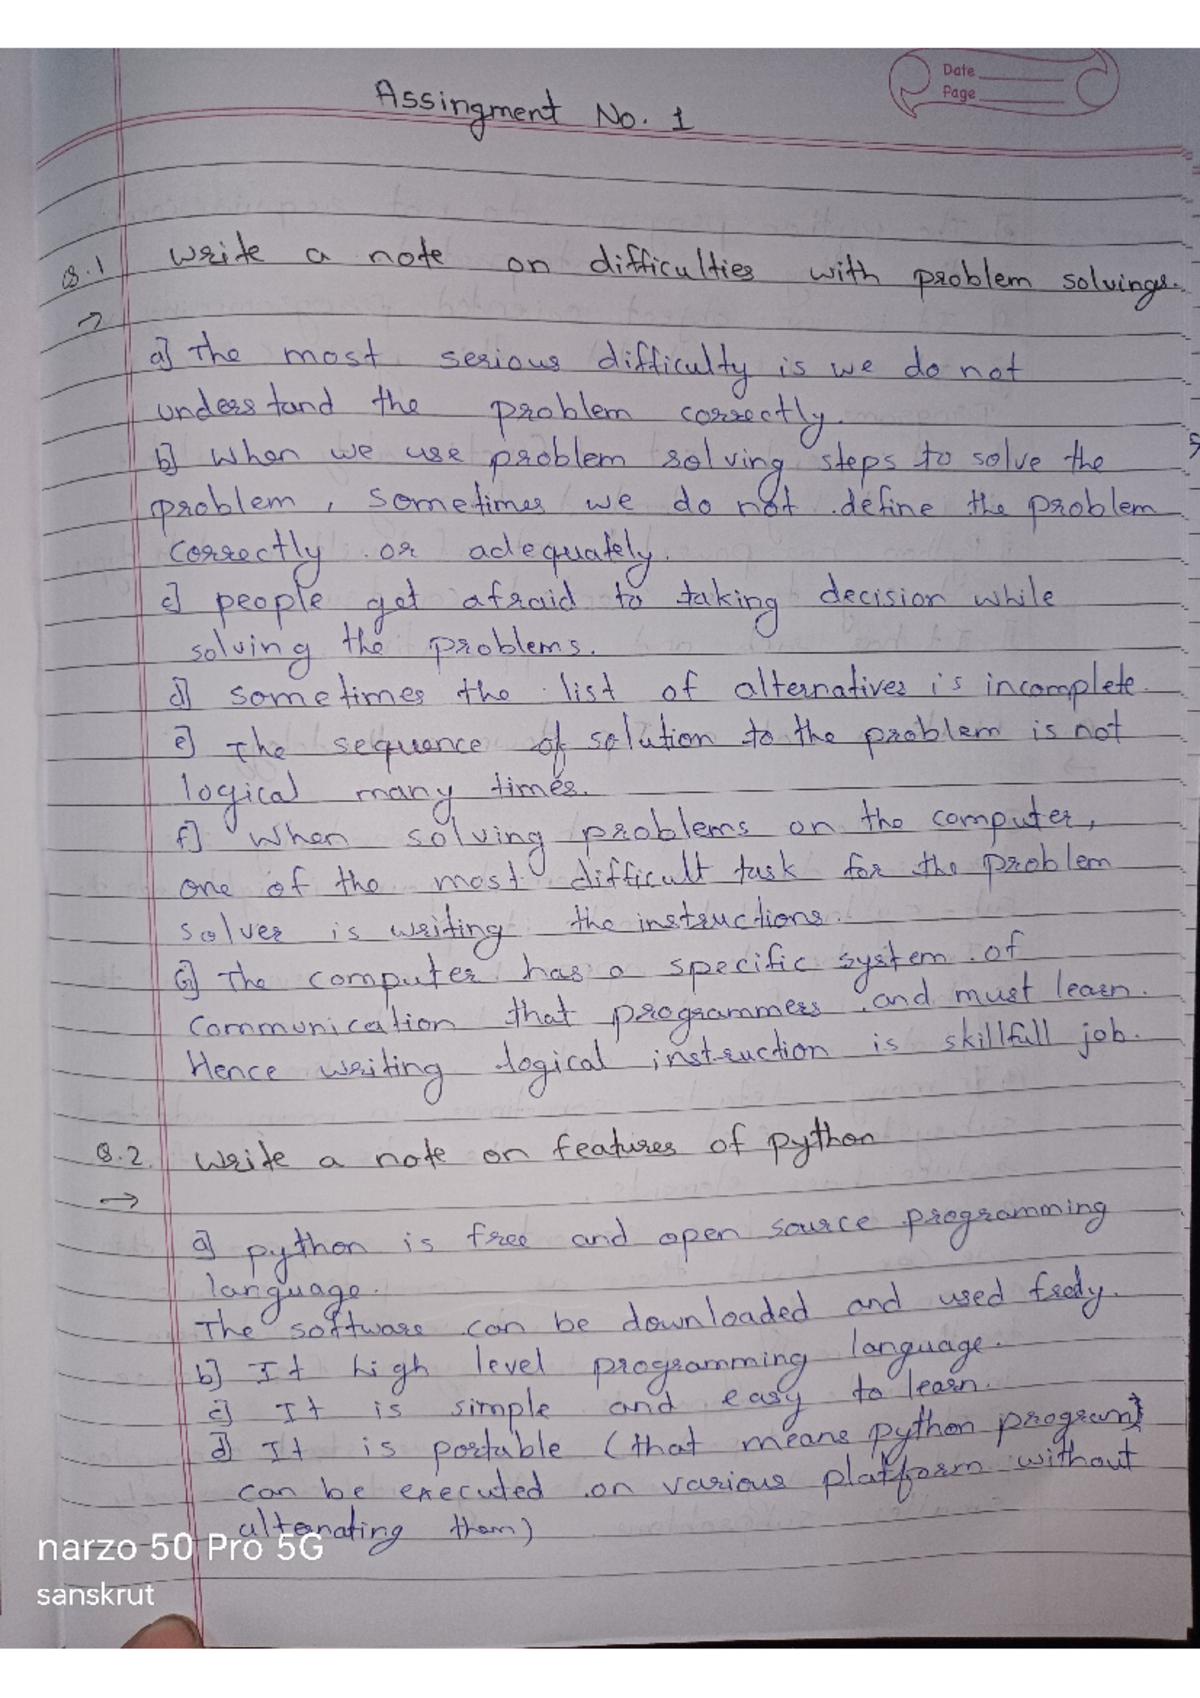 Date
Page
Assingment No. 1
Q.1 Write a note on difficulties with problem solvings.
→
a] The most serious difficulty is we do not
understand the problem correctly.
b] When we use problem solving steps to solve the
problem, sometimes we do not define the problem
correctly or adequately.
c] people get afraid to taking decision while
solving the problems.
d] sometimes the list of alternatives is incomplete
e] The sequence of solution to the problem is not
logical many times.
f] When solving problems on the computer,
one of the most difficult task for the problem
solver is writing the instructions.
G] The computer has a specific system of
communication that programmers and must learn.
Hence writing logical instruction is skillfull job.
Q.2. Write a note on features of python
→
a] python is free and open source programming
language.
The software can be downloaded and used
b] It high level programming language.
c] It is simple and easy to learn.
d] It is portable (that means python program
can be executed on various platform without
them)
narzo 50 Pro 5G
sanskrut